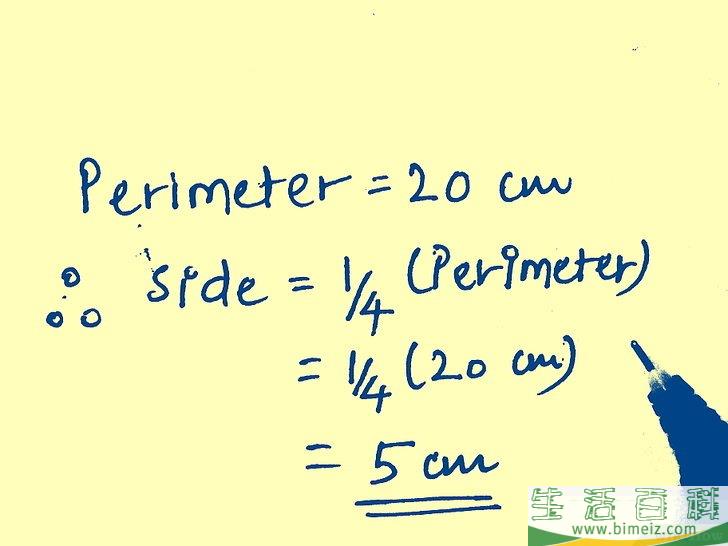 Perimeter = 20 cm
∴ Side = 1/4 (Perimeter)
= 1/4 (20 cm)
= 5 cm
生活百科
www.bimeiz.com